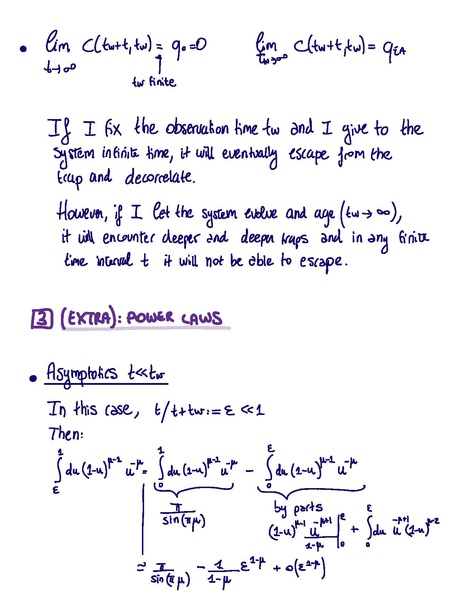 • lim_{t→∞} C(tw+t, tw) = q₀ = 0    lim_{tw→∞} C(tw+t, tw) = q_{EA}
↑ tw finite
If I fix the observation time tw and I give to the
system infinite time, it will eventually escape from the
trap and decorrelate.
However, if I let the system evolve and age (tw → ∞),
it will encounter deeper and deeper traps and in any finite
time interval t it will not be able to escape.
3 (EXTRA): POWER LAWS
• Asymptotics t<<tw
In this case, t/t+tw := ε <<1
Then:
∫_ε^1 du (1-u)^{μ-1} u^{-μ} = ∫_0^1 du (1-u)^{μ-1} u^{-μ} - ∫_0^ε du (1-u)^{μ-1} u^{-μ}
π/sin(πμ)    by parts
(1-u)^{μ-1} u^{-μ+1}/(1-μ) |_0^ε + ∫_0^ε du u^{-μ+1} (1-u)^{μ-2}
= π/sin(πμ) - 1/(1-μ) ε^{1-μ} + o(ε^{1-μ})